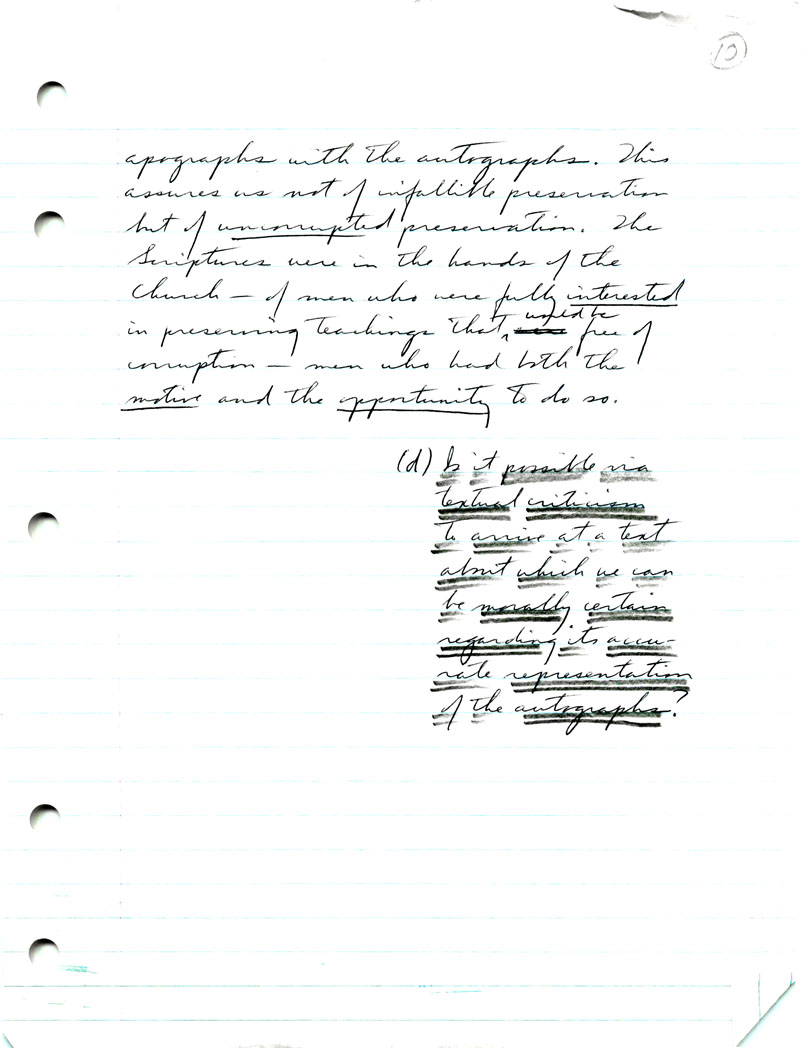 10
apographs with the autographs. This
assures us not of infallible preservation
but of uncorrupted preservation. The
Scriptures were in the hands of the
Church — of men who were fully interested
in preserving teachings that would be free of
corruption — men who had both the
motive and the opportunity to do so.
(d) Is it possible via
textual criticism
to arrive at a text
about which we can
be morally certain
regarding its accu-
rate representation
of the autographs?